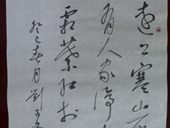 遠上寒山
有人家停
霜葉紅於
癸巳春月劉